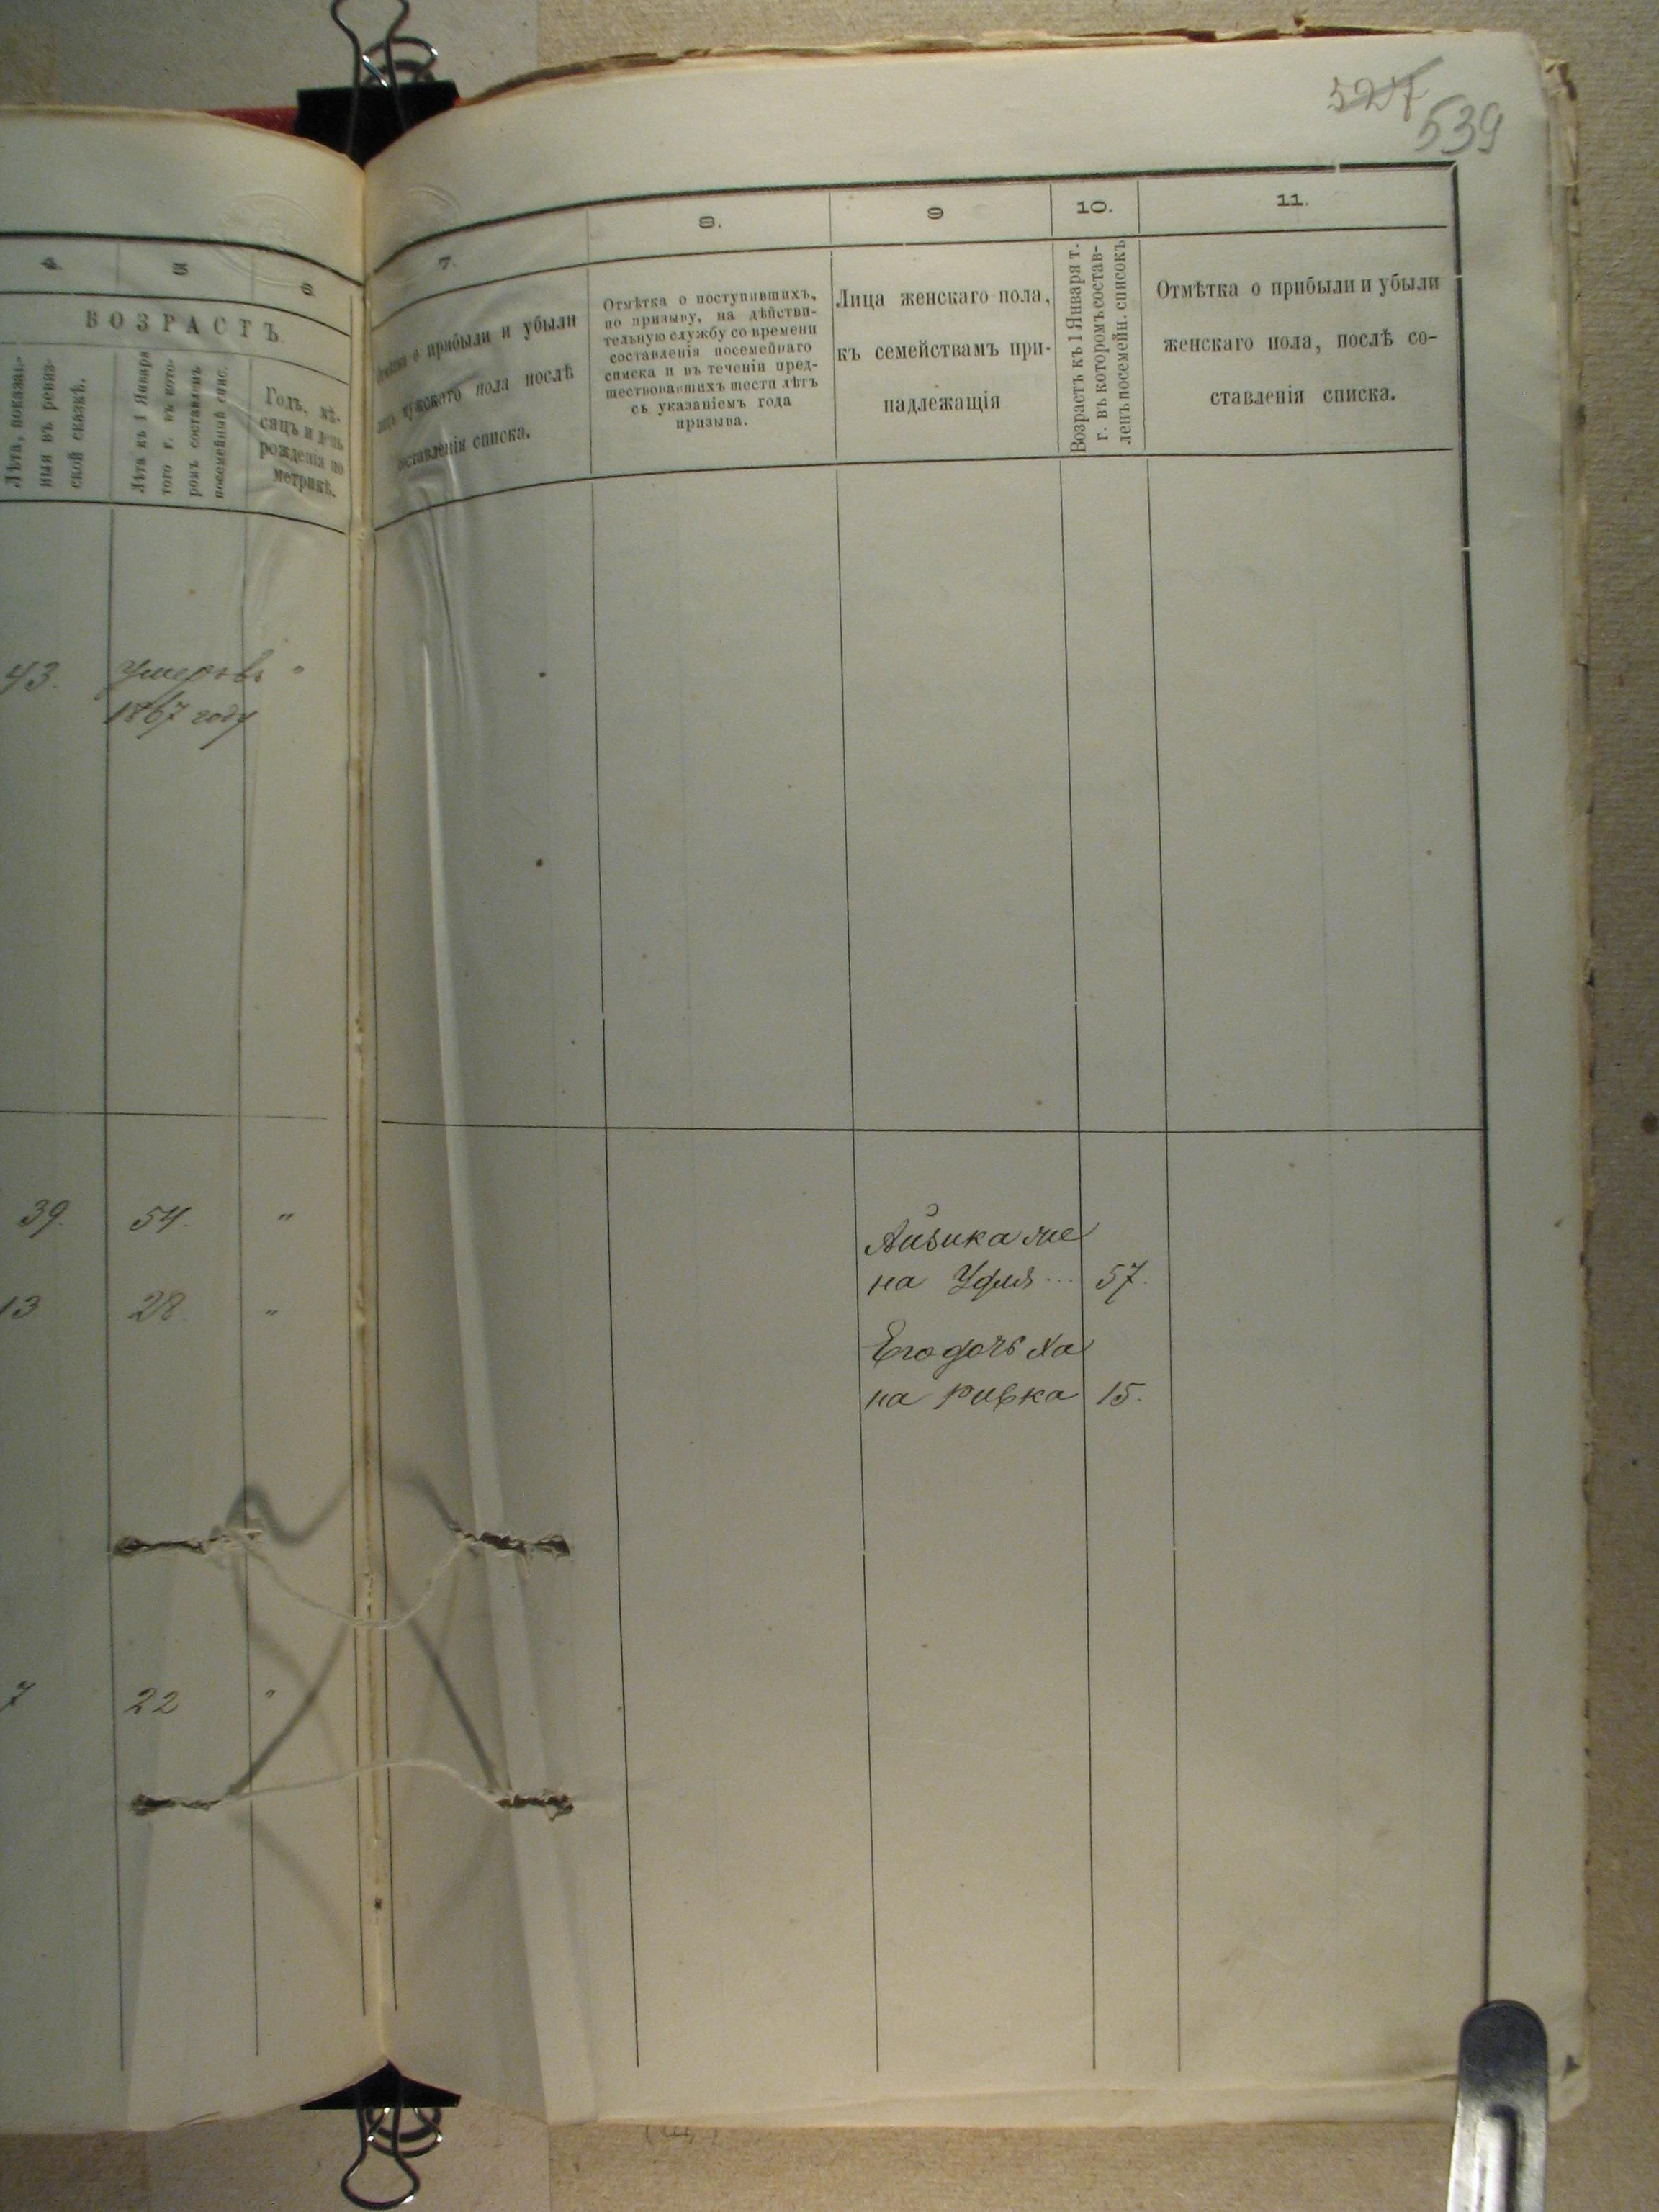 527
539
4.
5
6
ВОЗРАСТЪ
Лѣта, показан-
ныя въ ревиз-
ской сказкѣ.
Лѣта къ 1 Января
того г. въ кото-
ромъ составленъ
посемейный спис.
Годъ, мѣ-
сяцъ и день
рожденія по
метрикѣ.
43.
Умеръ въ "
1867 году
39.
54.
"
13
28.
"
7
22
"
7.
8.
9
10.
11.
Отмѣтка о прибыли и убыли
лицъ мужскаго пола послѣ
составленія списка.
Отмѣтка о поступившихъ,
по призыву, на дѣйстви-
тельную службу со времени
составленія посемейнаго
списка и въ теченіи пред-
шествовавшихъ шести лѣтъ
съ указаніемъ года
призыва.
Лица женскаго пола,
къ семействамъ при-
надлежащія
Возрастъ къ 1 Января т.
г. въ которомъ состав-
ленъ посемейн. списокъ
Отмѣтка о прибыли и убыли
женскаго пола, послѣ со-
ставленія списка.
Айзика же
на Удля ... 57.
Его дочь Ха
на Ривка 15.